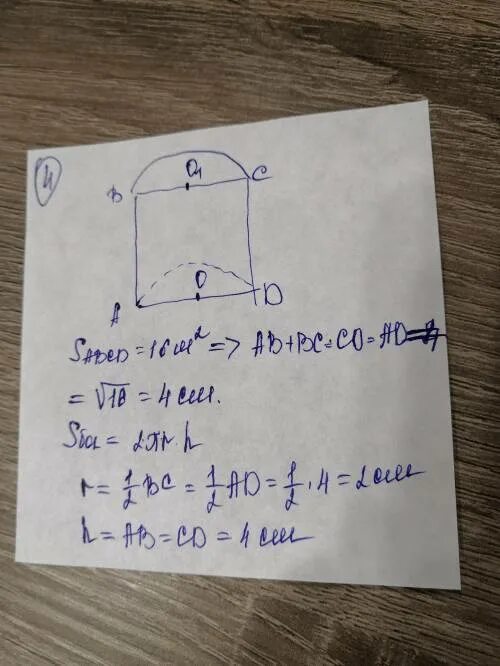 4
O₁
B
C
O
A
D
S_ABCD = 16 см² => AB+BC=CD=AD=
= √16 = 4 см.
Sбок = 2πr·h
r = 1/2 BC = 1/2 AD = 1/2 · 4 = 2 см
h = AB = CD = 4 см